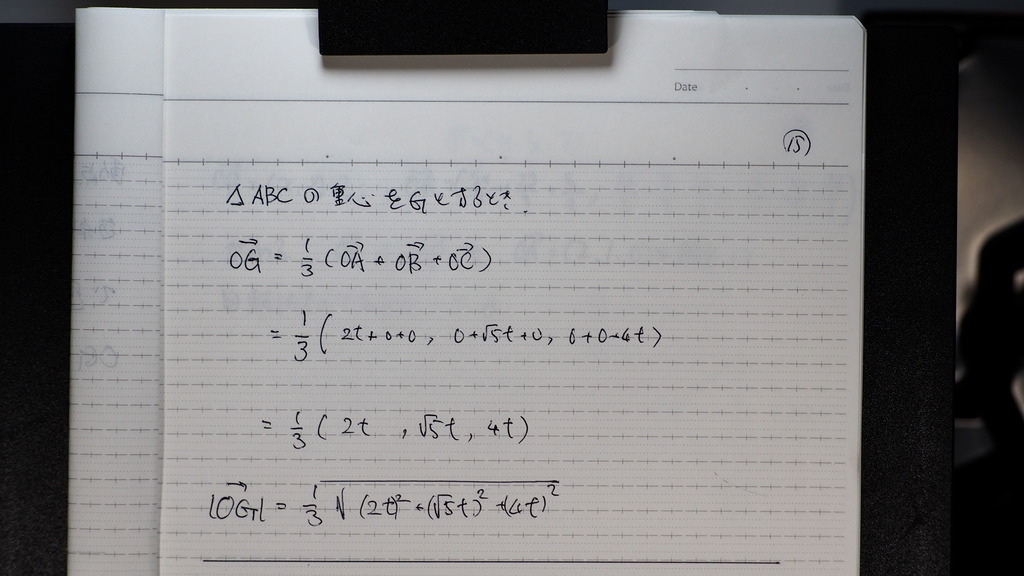 Date
⑮
△ABCの重心をGとするとき.
\vec{OG} = \frac{1}{3}(\vec{OA} + \vec{OB} + \vec{OC})
= \frac{1}{3}(2t+0+0, 0+√5t+0, 0+0+4t)
= \frac{1}{3}(2t, √5t, 4t)
|\vec{OG}| = \frac{1}{3}\sqrt{(2t)^2+(√5t)^2+(4t)^2}